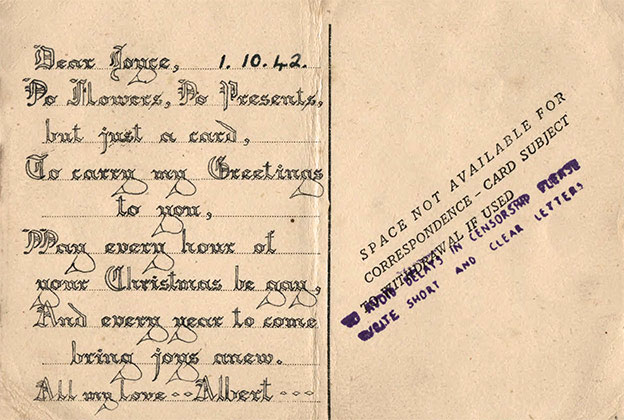 Dear Joyce, 1.10.42.
No Flowers, No Presents,
but just a card,
To carry my Greetings
to you,
May every hour of
your Christmas be gay,
And every year to come
bring joys anew.
All my love -- Albert ---
SPACE NOT AVAILABLE FOR
CORRESPONDENCE - CARD SUBJECT
TO WITHDRAWAL IF USED
TO AVOID DELAYS IN CENSORSHIP PLEASE
WRITE SHORT AND CLEAR LETTERS